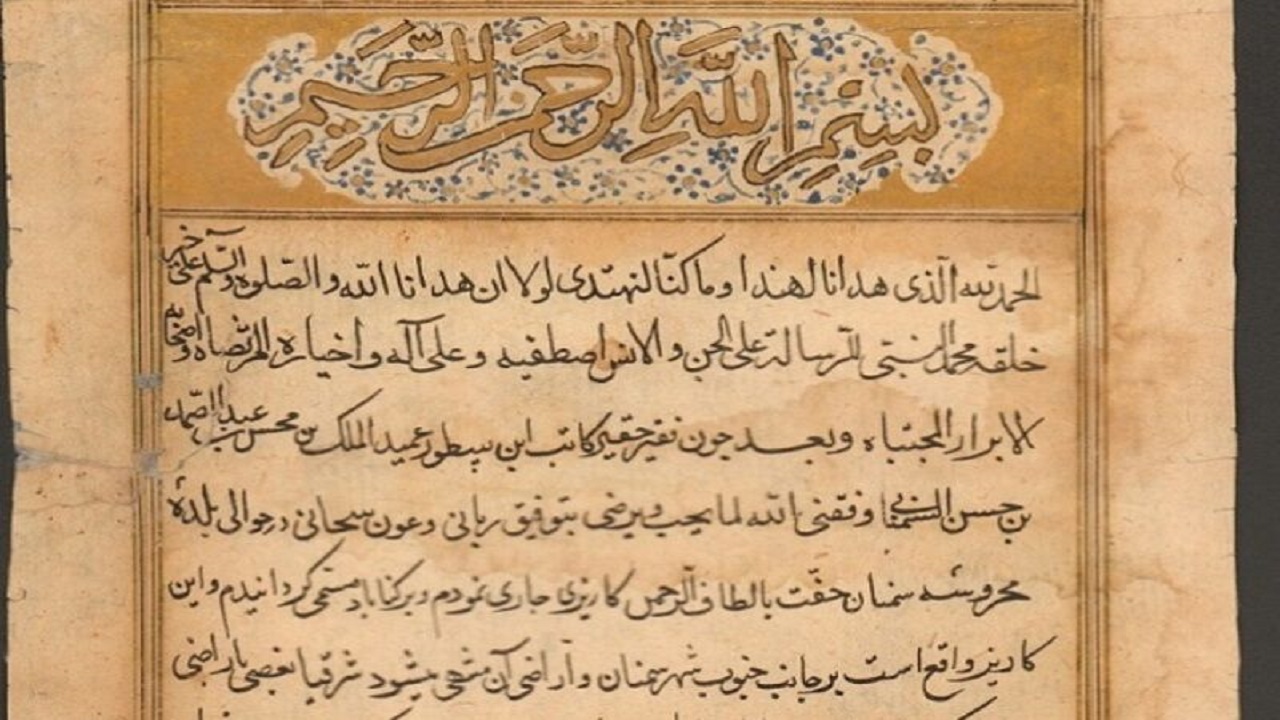 بسم الله الرحمن الرحيم
الحمد لله الذى هدانا لهذا و ما كنّا لنهتدى لولا ان هدانا الله و الصّلوة و السّلم على خير
خلقه محمد المجتبى للرسالة على الجن و الانس اصطفيه و على آله و اخياره المرتضاه و اصحابه
الابرار المجتباه و بعد چون فقير حقير كاتب اين سطور عميد الملك بن محسن بن عبد الصمد
بن حسن السمنانى وفقنى الله لما يحب و يرضى بتوفيق ربانى و عون سبحانى در حوالى بلدهٔ
محروسه سمنان حفّت بالطاف الرحمن كاريزى جارى نمودم و بركناباد مسمّى كردانيدم و اين
كاريز واقع است بر جانب جنوب شهر سمنان و آراضى آن منتهى ميشود شرقيا بعضى باراضى